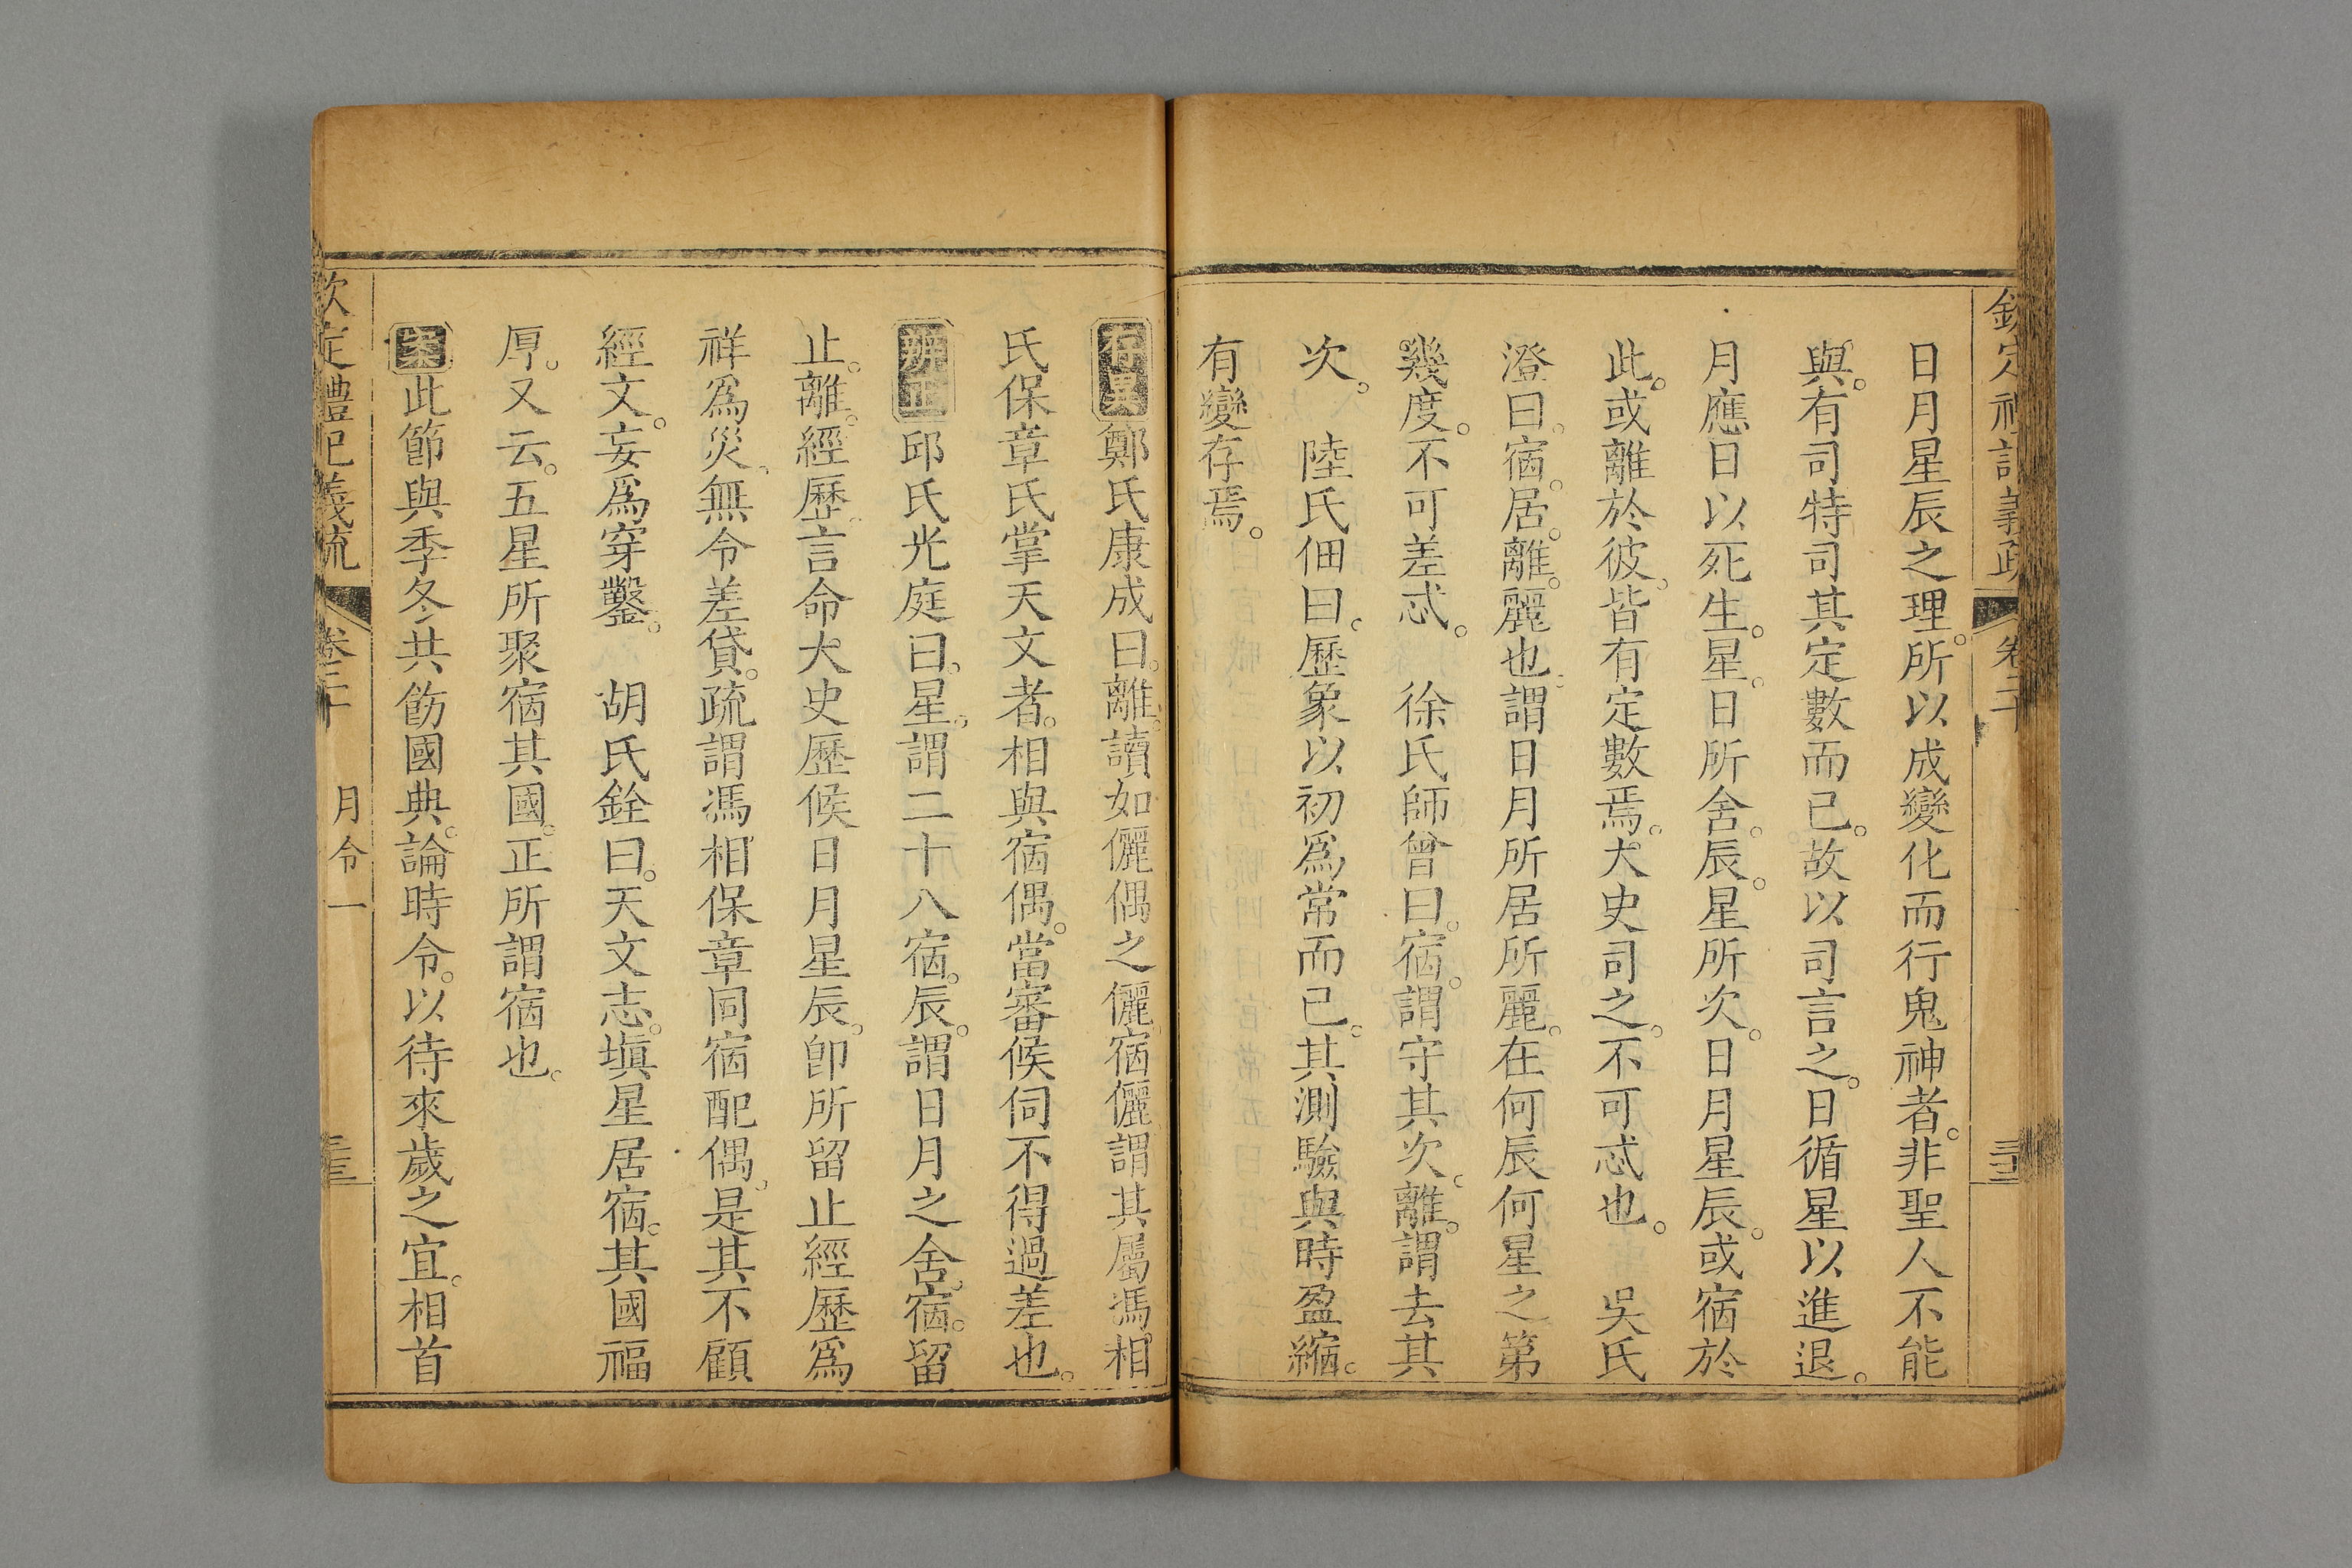 欽定禮記義疏 卷二十
日月星辰之理。所以成變化而行鬼神者。非聖人不能
與。有司特司其定數而已。故以司言之。日循星以進退。
月應日以死生。星。日所舍。辰。星所次。日月星辰。或宿於
此。或離於彼。皆有定數焉。大史司之。不可忒也。 吳氏
澄曰。宿。居。離。麗也。謂日月所居所麗。在何辰何星之第
幾度。不可差忒。 徐氏師曾曰。宿。謂守其次。離。謂去其
次。 陸氏佃曰。歷象以初爲常而已。其測驗與時盈縮。
有變存焉。
存異鄭氏康成曰。離。讀如儷偶之儷。宿儷。謂其屬馮相
氏保章氏掌天文者。相與宿偶。當審候伺不得過差也。
辨正邱氏光庭曰。星。謂二十八宿。辰。謂日月之舍。宿。留
止。離。經歷。言命大史歷候日月星辰。卽所留止經歷爲
祥爲災。無令差貸。疏謂馮相保章同宿配偶。是其不顧
經文。妄爲穿鑿。 胡氏銓曰。天文志。塡星居宿。其國福
厚。又云。五星所聚宿其國。正所謂宿也。
案此節與季冬共飭國典。論時令。以待來歲之宜。相首
欽定禮記義疏 卷二十 月令一